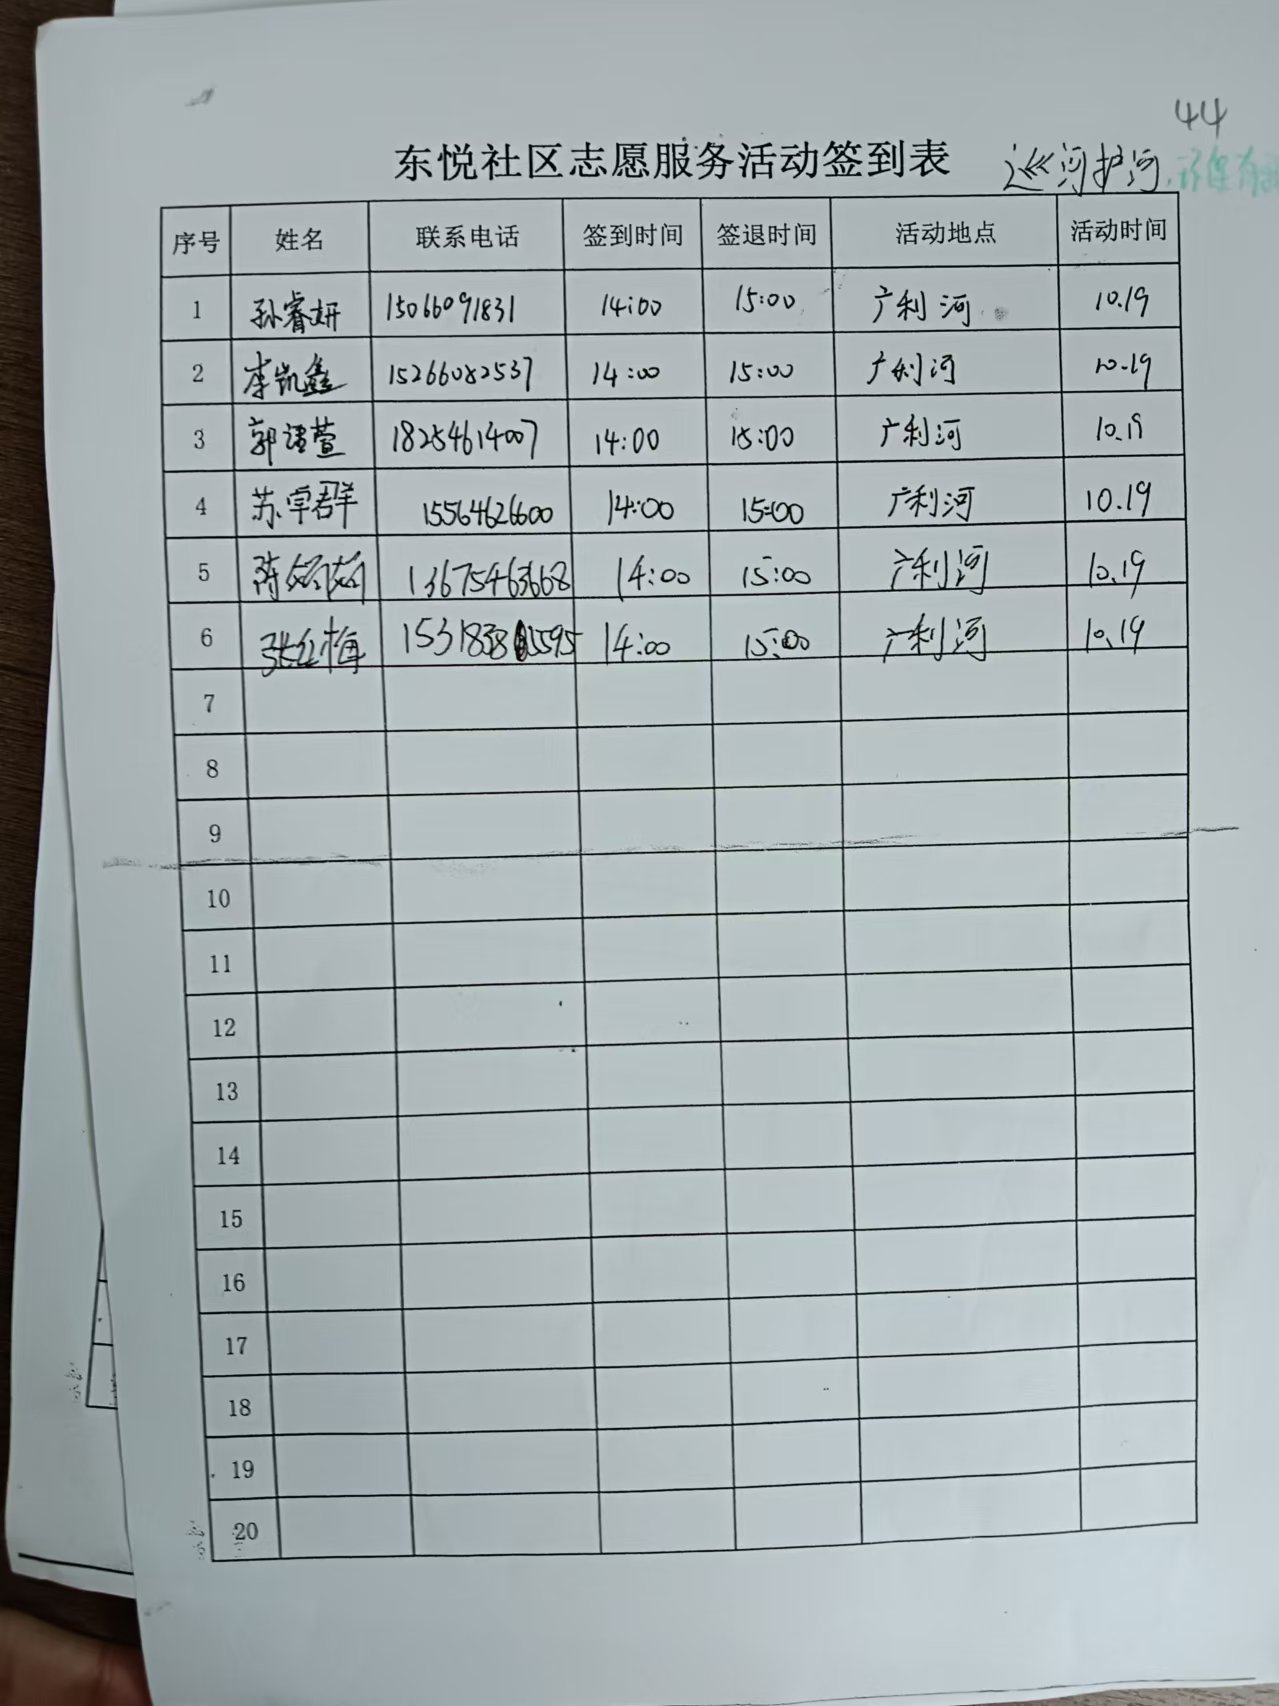 44
东悦社区志愿服务活动签到表 巡河护河
序号 姓名 联系电话 签到时间 签退时间 活动地点 活动时间
1 孙睿妍 15066091831 14:00 15:00 广利河 10.19
2 李凯鑫 15266082537 14:00 15:00 广利河 10.19
3 郭 萱 18254614007 14:00 15:00 广利河 10.19
4 苏学群 15564626600 14:00 15:00 广利河 10.19
5 13675463668 14:00 15:00 广利河 10.19
6 张红梅 14:00 15:00 广利河 10.19
7
8
9
10
11
12
13
14
15
16
17
18
19
20